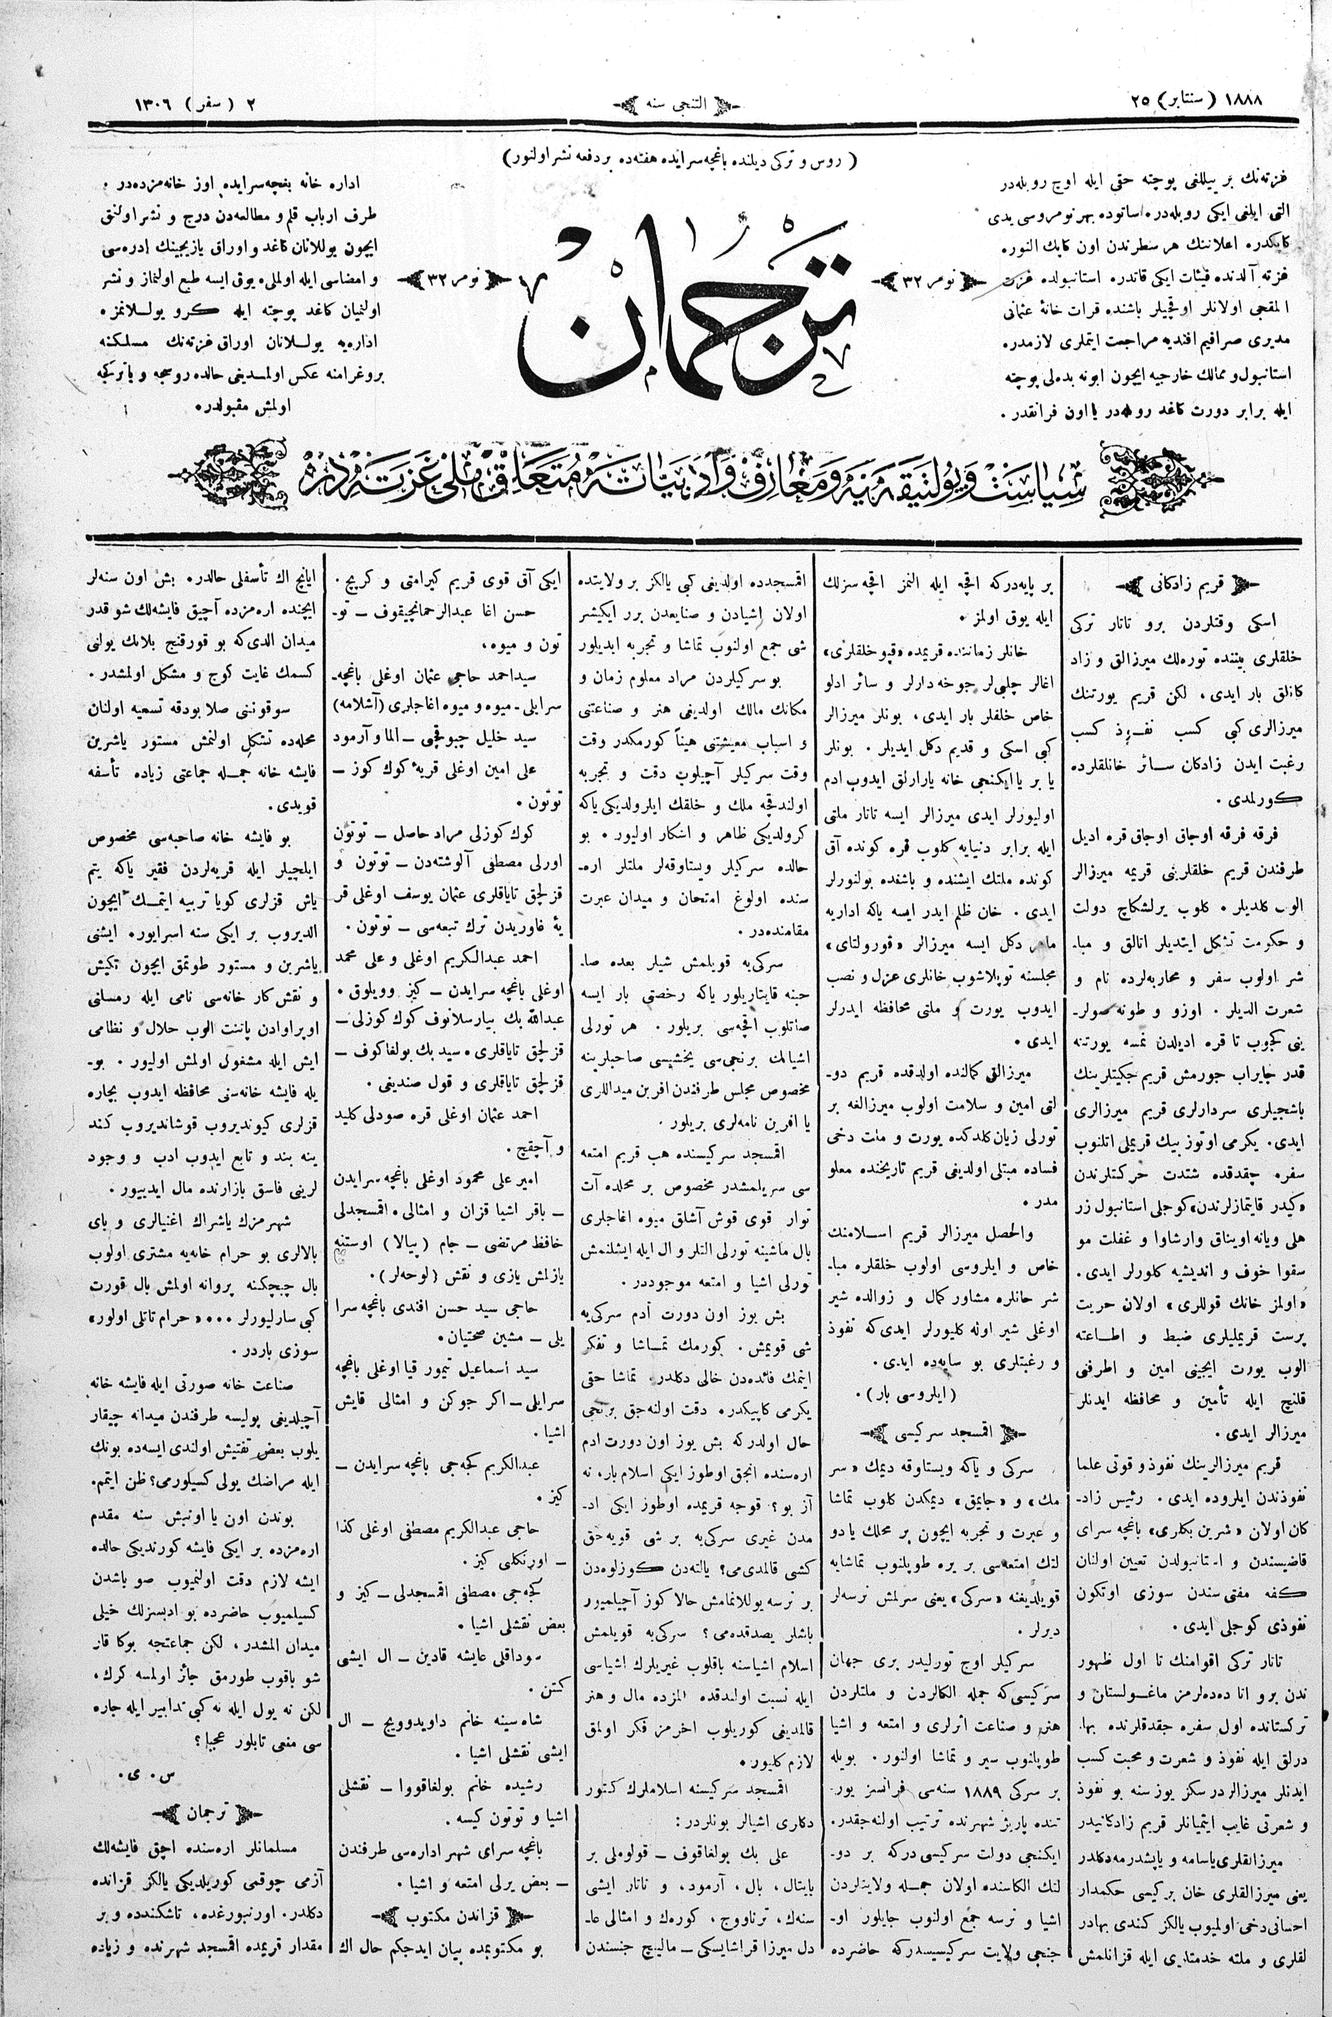 ١٨٨٨ (سنتابر) ٢٥
التنجی سنه
٢ (سفر) ١٣٠٦
(روس و ترکی دیلنده باغچه سرایده هفته‌ده بر دفعه نشر اولنور)
غزته‌نك بر ییللغی پوچته حقی ایله اوچ روبله‌در
التی ایلغی ایکی روبله‌در. ساتوده بهر نومروسی یدی
کاپکدر. اعلاننك هر سطرندن اون کاپك النور.
غزته آلدنده فیئات ایکی قاتدر. استانبولده غزت
المقجی اولانلر اوقجیلر باشنده قرات خانهٔ عثمانی
مدیری صرافیم افندیه مراجعت ایتملری لازمدر.
استانبول و ممالك خارجیه ایچون ابونه بده‌لی پوچته
ایله برابر دورت کاغد روبله‌در یا اون فرانقدر.
نومر ٣٢
ترجمان
نومر ٣٢
اداره خانه بغچه سرایده اوز خانه مزده‌در.
طرف ارباب قلم و مطالعه‌دن درج و نشر اولنق
ایچون یوللانان کاغد و اوراق یازیجینك ادره‌سی
و امضاسی ایله اولملی. یوق ایسه طبع اولنماز و نشر
اولنمیان کاغد پوچته ایله کرو یوللانمز.
اداره‌یه یوللانان اوراق غزته‌نك مسلکنه
پروغرامنه عکس اولمدیغی حالده روسجه و یا ترکیچه
اولمش مقبولدر.
سیاست و پولتیقه‌یه و معارف و ادبیاته متعلق ملی غزته‌در
قریم زادکانی
اسکی وقتلردن برو تاتار ترکی
خلقلری بیننده توره‌لك میرزالق و زاد
کانلق بار ایدی، لکن قریم یورتنك
میرزالری کبی کسب نفوذ کسب
رغبت ایدن زادکان سائر خانلقلرده
کورلمدی.
فرقه فرقه اوجاق اوجاق قره ادیل
طرفندن قریم خلقلرینی قریمه میرزالر
الوب کلدیلر. کلوب یرلشکاچ دولت
و حکومت تشکل ایتدیلر اتالق و مبا-
شر اولوب سفر و محاربه‌لرده نام و
شعرت الدیلر. اوزو و طونه صولر-
ینی کچوب تا قره ادیلدن نمسه یورتنه
قدر چایراب جورمش قریم جکیتلرینك
باشجیلری سردارلری قریم میرزالری
ایدی. یکرمی اوتوز بیك قریملی اتلنوب
سفره چقدقده شتدت حرکتلرندن
«کیدر قایتمازلرندن» کوجلی استانبول زر
هلی ویانه اویناق وارشاوا و غفلت مو
سقوا خوف و اندیشیه کلورلر ایدی.
«اولمز خانك قوللری» اولان حریت
پرست قریملیلری ضبط و اطاعته
الوب یورت ایچینی امین و اطرفنی
قلنچ ایله تأمین و محافظه ایدنلر
میرزالر ایدی.
قریم میرزالرینك نفوذ و قوتی علما
نفوذندن ایلروده ایدی. رئیس زاد-
کان اولان «شرین بکلری» باغچه سرای
قاضیسندن و استانبولدن تعیین اولنان
کفه مفتی سندن سوزی اوتکون
نفوذی کوجلی ایدی.
تاتار ترکی اقوامنك تا اول ظهور
ندن برو انا ده‌ده‌لرمز ماغولستان و
ترکستانده اول سفره چقدقلرنده بها-
درلق ایله نفوذ و شعرت و محبت کسب
ایدنلر میرزالردر سکز یوز سنه بو نفوذ
و شعرتی غایب ایتمیانلر قریم زادکانیدر
میرزالقلری یاسامه و یاپشدرمه دکلدر
یعنی میرزالقلری خان برکیسی حکمدار
احسانی دخی اولمیوب یالکز کندی بهادر
لقلری و ملته خدمتلری ایله قزانلمش
بر پایه‌درکه اقچه ایله النمز اقچه سزلك
ایله یوق اولمز.
خانلر زماننده قریمده «قپو خلقلری»
اغالر چلبی‌لر جوخه دارلر و سائر ادلو
خاص خلقلر بار ایدی، بونلر میرزالر
کبی اسکی و قدیم دکل ایدیلر. بونلر
یا بر یا ایکنجی خانه یارارلق ایدوب ادم
اولیورلر ایدی میرزالر ایسه تاتار ملتی
ایله برابر دنیایه کلوب قره کونده آق
کونده ملتك ایشنده و باشنده بولنورلر
ایدی. خان ظلم ایدر ایسه یاکه اداریه
ماهر دکل ایسه میرزالر «قورولتای»
مجلسنه توپلاشوب خانلری عزل و نصب
ایدوب یورت و ملتی محافظه ایدرلر
ایدی.
میرزالق کمالنده اولدقده قریم دو-
لتی امین و سلامت اولوب میرزالغه بر
تورلی زیان کلدکده یورت و ملت دخی
فساده مبتلی اولدیغی قریم تاریخنده معلو
مدر.
والحصل میرزالر قریم اسلامنك
خاص و ایلروسی اولوب خلقلره مبا-
شر خانلره مشاور کمال و زوالده شیر
اوغلی شیر اوله کلیورلر ایدی‌که نفوذ
و رغبتلری بو سایه‌ده ایدی.
(ایلروسی بار).
اقمسجد سرکیسی
سرکی و یاکه ویستاوقه دیمك «سر
مك» و «جایمق» دیمکدن کلوب تماشا
و عبرت و تجربه ایچون بر محلك یا دو
لتك امتعه‌سی بر یره طوپلنوب تماشایه
قویلدیغنه «سرکی» یعنی سرلمش نرسه‌لر
دیرلر.
سرکیلر اوچ تورلیدر بری جهان
سرکیسی‌که جمله الکالردن و ملتلردن
هنر و صناعت اثرلری و امتعه و اشیا
طوپلنوب سیر و تماشا اولنور. بویله
بر سرکی ١٨٨٩ سنه‌سی فرانسز یور-
تنده پاریژ شهرنده ترتیب اولنه‌جقدر.
ایکنجی دولت سرکیسی درکه بر دو-
لتك الکاسنده اولان جمله ولایتلردن
اشیا و نرسه جمع اولنوب جایلور او-
جنجی ولایت سرکیسیدرکه حاضرده
اقمسجدده اولدیغی کبی یالکز بر ولایتده
اولان اشیادن و صنایعدن برر ایکیشر
شی جمع اولنوب تماشا و تجربه ایدیلور
بو سرکیلردن مراد معلوم زمان و
مکانك مالك اولدیغی هنر و صناعتنی
و اسباب معیشتنی هیئاً کورمکدر وقت
وقت سرکیلر آچیلوب دقت و تجربه
اولندقچه ملك و خلقك ایلرولدیکی یاکه
کرولدیکی ظاهر و اشکار اولیور. بو
حالده سرکیلر ویستاوقه‌لر ملتلر اره-
سنده اولوغ امتحان و میدان عبرت
مقامنده‌در.
سرکی‌یه قویلمش شیلر بعده صا-
حبنه قایتاریلور یاکه رخصتی بار ایسه
صاتلوب اقچه‌سی بریلور. هر تورلی
اشیانك برنجی‌سی یخشیسی صاحبلرینه
مخصوص مجلس طرفندن افرین میداللری
یا افرین نامه‌لری بریلور.
اقمسجد سرکیسنده هب قریم امتعه
سی سریلمشدر مخصوص بر محلده آت
توار قوی قوش آشلق میوه اغاجلری
بال ماشینه تورلی التلر و ال ایله ایشلنمش
تورلی اشیا و امتعه موجوددر.
بش یوز اون دورت آدم سرکی‌یه
شی قویمش. کورمك تماشا و تفکر
ایتمك فائده‌دن خالی دکلدر. تماشا حقی
یکرمی کاپیکدر. دقت اولنه‌جق برنجی
حال اولدرکه بش یوز اون دورت ادم
اره‌سنده انجق اوطوز ایکی اسلام بار، نه
آز بو؟ قوجه قریمده اوطوز ایکی اد-
مدن غیری سرکی‌یه بر شی قویه‌جق
کشی قالمدی‌می؟ یالته‌دن کوزلوه‌دن
بر نرسه یوللانمامش حالا کوز آچیلمیور
باشلر یصدقده‌می؟ سرکی‌یه قویلمش
اسلام اشیاسنه باقلوب غیریلرك اشیاسی
ایله نسبت اولندقده المزده مال و هنر
قالمدیغی کوریلوب اخرمز فکر اولمق
لازم کلیور.
اقمسجد سرکیسنه اسلاملرك کتور
دکلری اشیالر بونلردر:
علی بك بولغاقوف – قوله‌ملی بر
بایتال، بال، آرمود، و تاتار ایشی
سنه‌ك، ترناووچ، کوره‌ك و امثالی عا-
دل میرزا قراشایسکی – مالیچ جنسندن
ایکی آق قوی قریم کیرامتی و کریچ.
حسن اغا عبدالرحمانچیقوف – تو-
تون و میوه،
سیداحمد حاجی عثمان اوغلی باغچه-
سرایلی – میوه و میوه اغاجلری (آشلامه)
سید خلیل چبوقچی – الما و آرمود
علی امین اوغلی قریهٔ کوك کوز –
توتون.
کوك کوزلی مراد حاصل – توتون
اورلی مصطفی آلوشته‌دن – توتون و
قزلجق تایاقلری عثمان یوسف اوغلی قر
یهٔ فاوریدن ترك تبعه‌سی – توتون.
احمد عبدالکریم اوغلی و علی محمد
اوغلی باغچه سرایدن – کیز وویلوق.
عبدالله بك بیارسلانوف کوك کوزلی –
قزلجق تایاقلری. سید بك بولغاکوف –
قزلجق تایاقلری و قول صندیغی.
احمد عثمان اوغلی قره صودلی کلید
و آچقچ.
امیر علی محمود اوغلی باغچه سرایدن
– باقر اشیا قزان و امثالی. اقمسجدلی
خافظ مرتضی – جام (پیالا) اوستنه
یازلمش یازی و نقش (لوحه‌لر).
حاجی سید حسن افندی باغچه سرا
یلی – مشین صحتیان.
سید اسماعیل تیمور قیا اوغلی باغچه
سرایلی – اکر جوکن و امثالی قایش
اشیا.
عبدالکریم کچه‌جی باغچه سرایدن –
کیز.
حاجی عبدالکریم مصطفی اوغلی کذا
– اورنکلی کیز.
کچه‌جی مصطفی اقمسجدلی – کیز و
بعض نقشلی اشیا.
سوداقلی عایشه قادین – ال ایشی
کتن.
شاه سینه خانم داویدوویچ – ال
ایشی نقشلی اشیا.
رشیده خانم بولغاقووا – نقشلی
اشیا و توتون کیسه.
باغچه سرای شهر اداره‌سی طرفندن
– بعض یرلی امتعه و اشیا.
قزاندن مکتوب
بو مکتوبمده بیان ایدجکم حال اك
ایانچ اك تأسفلی حالدر. بش اون سنه‌لر
ایچنده اره‌مزده آچیق فایشه‌لك شو قدر
میدان الدی‌که بو قورقنچ بلانك یولنی
کسمك غایت کوچ و مشکل اولمشدر.
سوقوننی صلابودقه تسمیه اولنان
محله‌ده تشکل اولنمش مستور یاشرین
فایشه خانه جمله جماعتی زیاده تأسفه
قویدی.
بو فایشه خانه صاحبه‌سی مخصوص
ایلچیلر ایله قریه‌لردن فقیر یاکه یتم
یاش قزلری کویا تربیه ایتمك ایچون
الدیروب بر ایکی سنه اسرایور. ایشنی
یاشرین و مستور طوتمق ایچون تکیش
و نقش کار خانه‌سی نامی ایله رمسانی
اوپراوادن پاتنت الوب حلال و نظامی
ایش ایله مشغول اولمش اولیور. بو-
یله فایشه خانه‌سنی محافظه ایدوب بچاره
قزلری کیوندیروب قوشاندیروب کند
ینه بند و تابع ایدوب ادب و وجود
لرینی فاسق بازارنده مال ایدییور.
شهرمزك یاشراك اغنیالری و بای
بالالری بو حرام خانه‌یه مشتری اولوب
بال چیچکنه پروانه اولمش بال قورت
کبی سارلیورلر ... «حرام تاتلی اولور»
سوزی باردر.
صناعت خانه صورتی ایله فایشه خانه
آچیلدیغی پولیسه طرفندن میدانه چیقار
یلوب بعض تفتیش اولندی ایسه‌ده بونك
ایله مراضك یولی کسیلورمی؟ ظن ایتمم.
بوندن اون یا اونبش سنه مقدم
اره‌مزده بر ایکی فایشه کورندیکی حالده
ایشه لازم دقت اولنمیوب صو باشدن
کسیلمیوب حاضرده بو ادبسزلك خیلی
میدان المشدر، لکن جماعتجه بوکا قار
شو باقوب طورمق جائز اولمسه کرك،
لکن نه یول ایله نه کبی تدابیر ایله چاره
سی منعی تابلور عجبا؟
س. ی.
ترجمان
مسلمانلر اره‌سنده اچق فایشه‌لك
آزمی چوقمی کوریلدیکی یالکز قزانده
دکلدر. اورنبورغده، تاشکندده و بر
مقدار قریمده اقمسجد شهرنده و زیاده